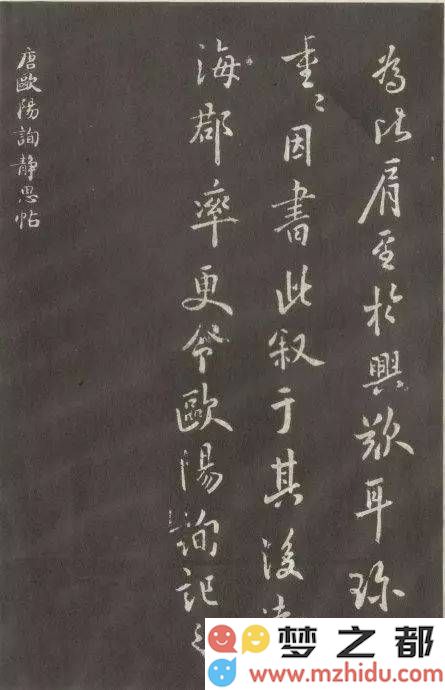 為比肩至於興歎耳珎
重〻因書此叙于其後
海郡率更令歐陽詢記之
唐歐陽詢靜思帖
梦之都
www.mzhidu.com